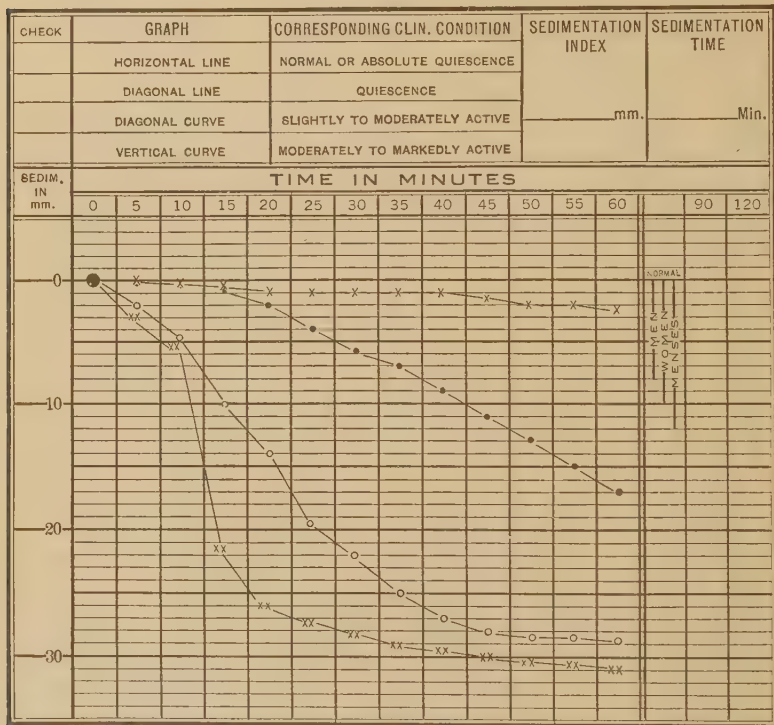 CHECK GRAPH CORRESPONDING CLIN. CONDITION SEDIMENTATION INDEX SEDIMENTATION TIME
HORIZONTAL LINE NORMAL OR ABSOLUTE QUIESCENCE
DIAGONAL LINE QUIESCENCE
DIAGONAL CURVE SLIGHTLY TO MODERATELY ACTIVE mm. Min.
VERTICAL CURVE MODERATELY TO MARKEDLY ACTIVE
SEDIM. IN mm.
TIME IN MINUTES
0 5 10 15 20 25 30 35 40 45 50 55 60 90 120
NORMAL
MEN
WOMEN
MENSES
0
10
20
30